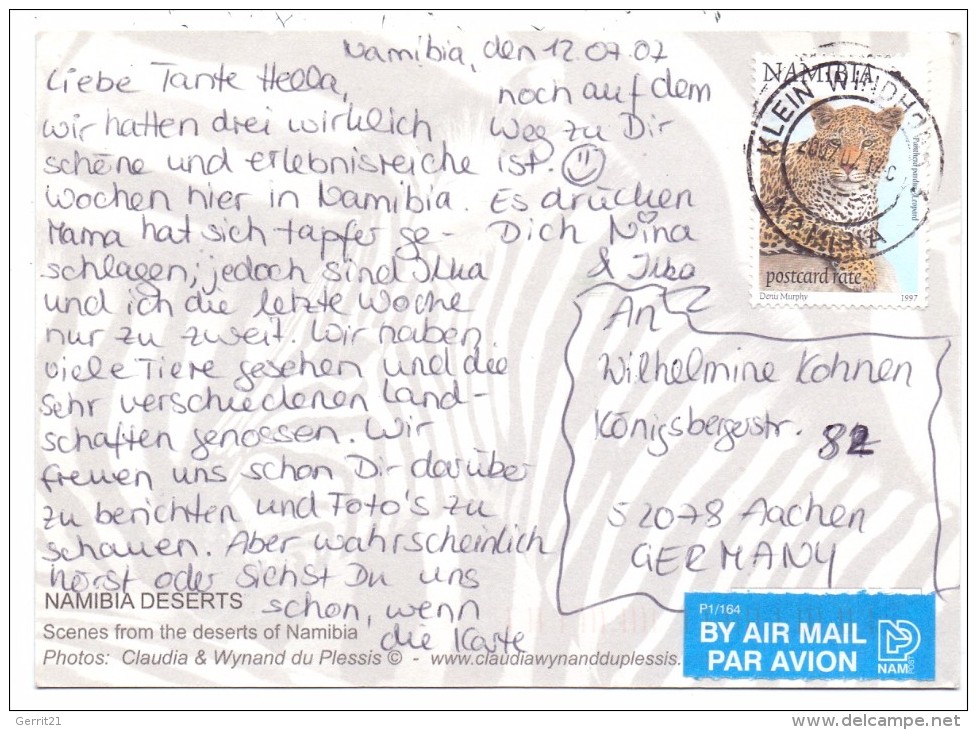 Namibia, den 12.07.07
Liebe Tante Hella,
wir hatten drei wirklich
schöne und erlebnisreiche
Wochen hier in Namibia.
Mama hat sich tapfer ge-
schlagen, jedoch sind Ilka
und ich die letzte Woche
nur zu zweit. Wir haben
viele Tiere gesehen und die
sehr verschiedenen Land-
schaften genossen. Wir
freuen uns schon Dir darüber
zu berichten und Foto's zu
schauen. Aber wahrscheinlich
hörst oder sichst Du uns
schon, wenn
die Karte
noch auf dem
Weg zu Dir
ist.
Es drücken
Dich Nina
& Ilka
An
Wilhelmine Kohnen
Königsbergerstr. 82
52078 Aachen
GERMANY
NAMIBIA
postcard rate
Denis Murphy 1997
KLEIN WINDHOEK
NAMIBIA
NAMIBIA DESERTS
Scenes from the deserts of Namibia
Photos: Claudia & Wynand du Plessis © - www.claudiawynandduplessis.
P1/164
BY AIR MAIL
PAR AVION
NAMPOST
Gerrit21
www.delcampe.net